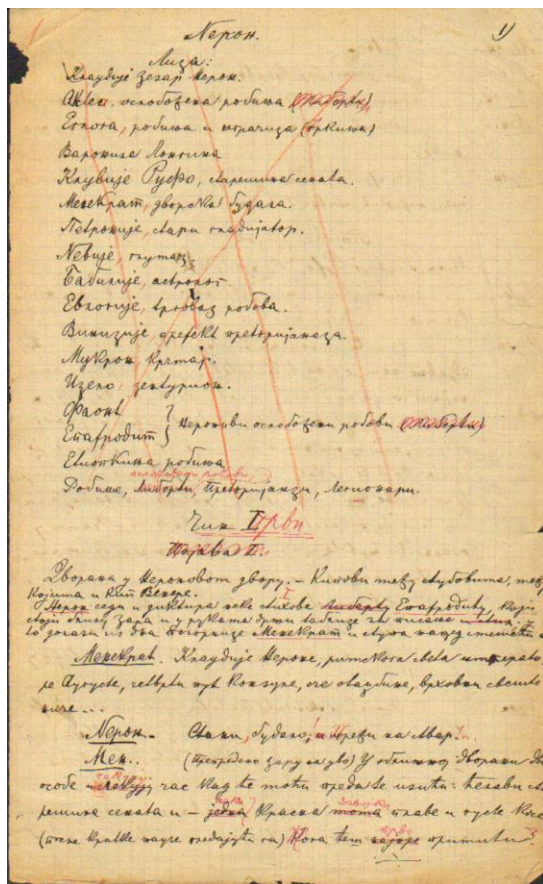 Нерон. 1)
Лиза:
Клаудије Цезар Нерон.
Актеа, ослобођена робиња
Егнота, робиња и врачиза (Гркиња)
Варонига Лонгина
Клувије Руфо, старешина сената.
Менекрат, дворска будала.
Петроније, стари гладијатор.
Невије, глумац.
Бабилије, астролог.
Евлогије, трговац робова.
Виницију, префект преторијанаца.
Мукрон крчмар.
Ицело, центурион.
Фаонт
Епафродит } Неронови ослобођени робови
робиња
Робиње, преторијанци, легионари.
Чин I први
Појава I
Дворана у Нероновом двору. – Кипови међу стубовима, међу
којима и кип Венере.
Нерон седи и диктира неке стихове Епафродиту, који
стоји близу цара и у рукама држи таблице за писање.
долази из дна позорнице Менекрат и
Менекрат. Клаудије Нероне, римскога света императо-
ре Аугусте, четврти пут конзуле, оче отаџбине, врховни свеште-
ниче...
Нерон. Стани, будало! Пређи на ствар.
Мен. (Прегледао цару на ухо) У обližњој дворани две
особе чекају час кад ће моћи преда те изићи: ћелави ста-
решина сената и – једна красна плаве и густе косе
(после кратке паузе гледајући га) Кога ћеш прво примити?